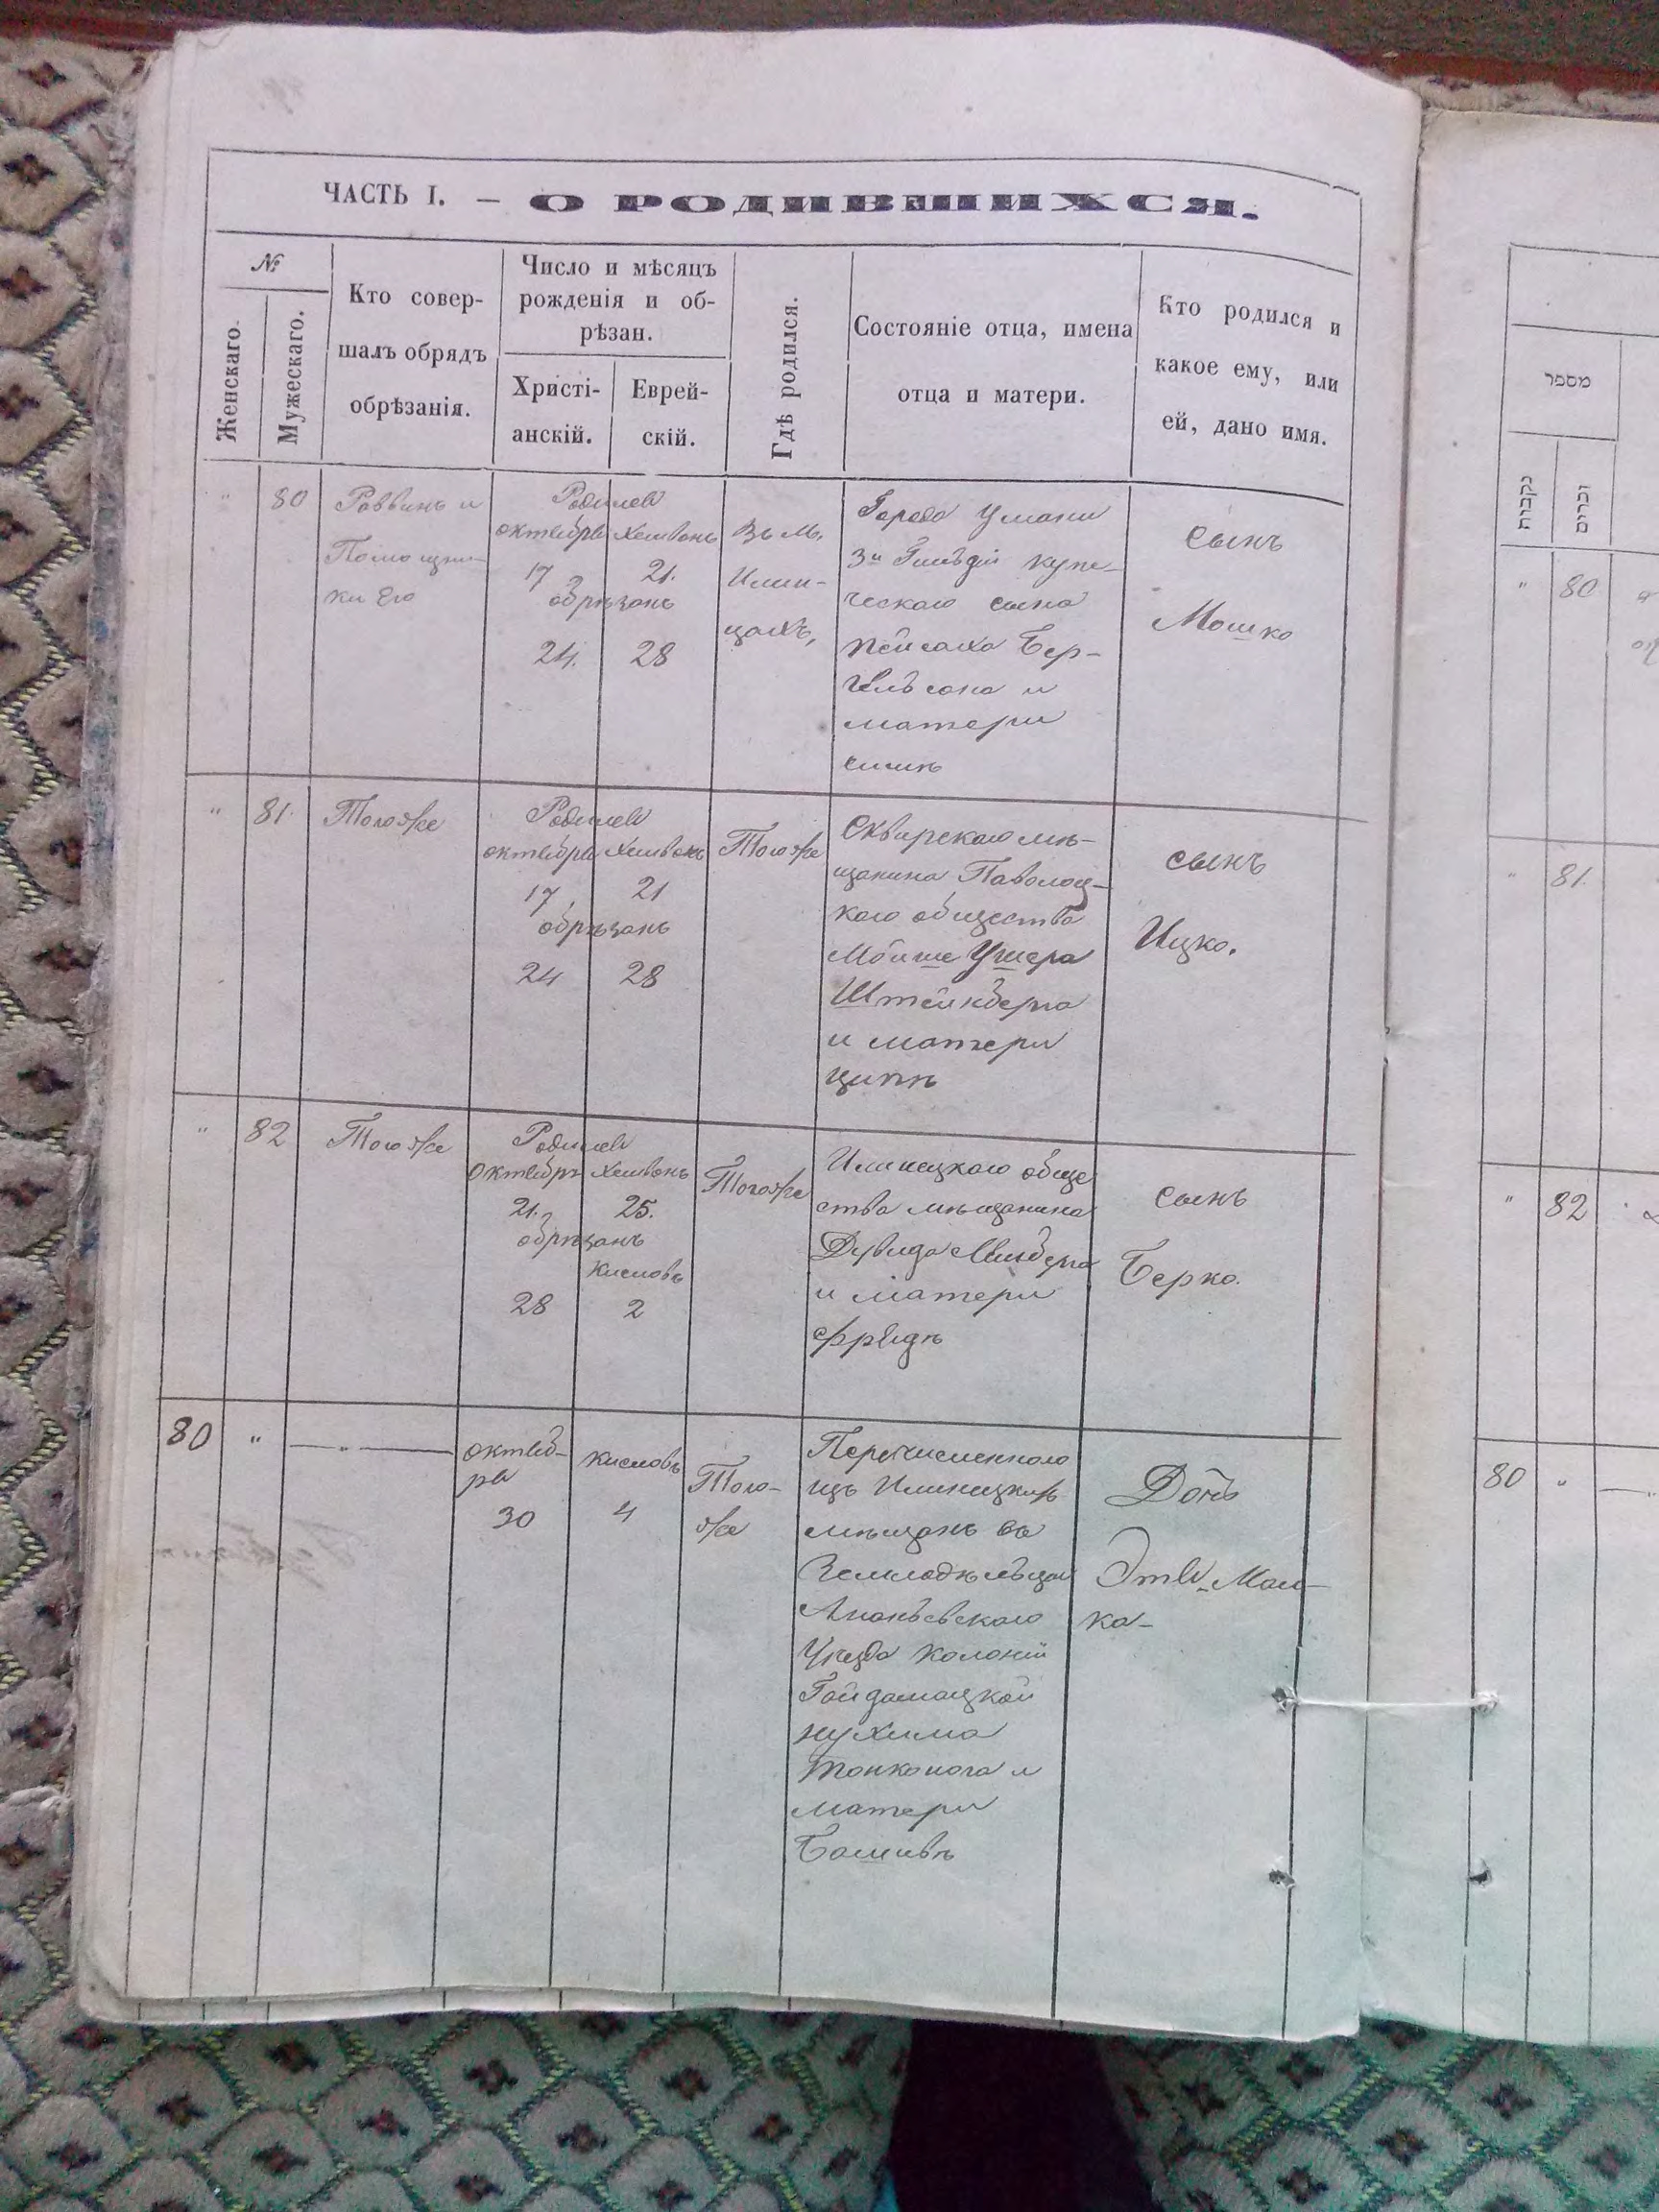 ЧАСТЬ I. — О РОДИВШИХСЯ.
№
Женскаго.
Мужескаго.
Кто совер-
шалъ обрядъ
обрѣзанія.
Число и мѣсяцъ
рожденія и об-
рѣзан.
Христі-
анскій.
Еврей-
скій.
Гдѣ родился.
Состояніе отца, имена
отца и матери.
Кто родился и
какое ему, или
ей, дано имя.
"
80
Раввинъ и
Помощни-
ки Его
Родился
октября Хешвонъ
17 21.
обрѣзанъ
24. 28
Въ М.
Илин-
цахъ,
Города Умани
3й Гильдіи купе-
ческаго сына
Пейсаха Бер-
и
матери
сынъ
Мошко
"
81.
Тогоже
Родился
октября Хешвонъ
17 21
обрѣзанъ
24 28
Тогоже
Сквирскаго мѣ-
щанина Паволоц-
каго общества
Мойше Ушера
Штейнберга
и матери
Ципѣ
сынъ
Ицко.
"
82
Тогоже
Родился
Октября Хешвонъ
21. 25.
обрѣзанъ
Кисловъ
28 2
Тогоже
Илинецкаго обще
ства мѣщанина
Дувида
и матери
Фрейдѣ
сынъ
Берко.
80
"
— " —
октяб-
ря
30
Кисловъ
4
Того-
же
Перечисленного
изъ Илинецкихъ
мѣщанъ въ
Земледѣльцы
Ананьевскаго
Уѣзда колоніи
Гайдамацкой
Нухима
Тонконога и
матери
Башивѣ
Дочь
Этля-Мал-
ка-
מספר
נקבות
זכרים
"
80
"
81.
"
82
80
"